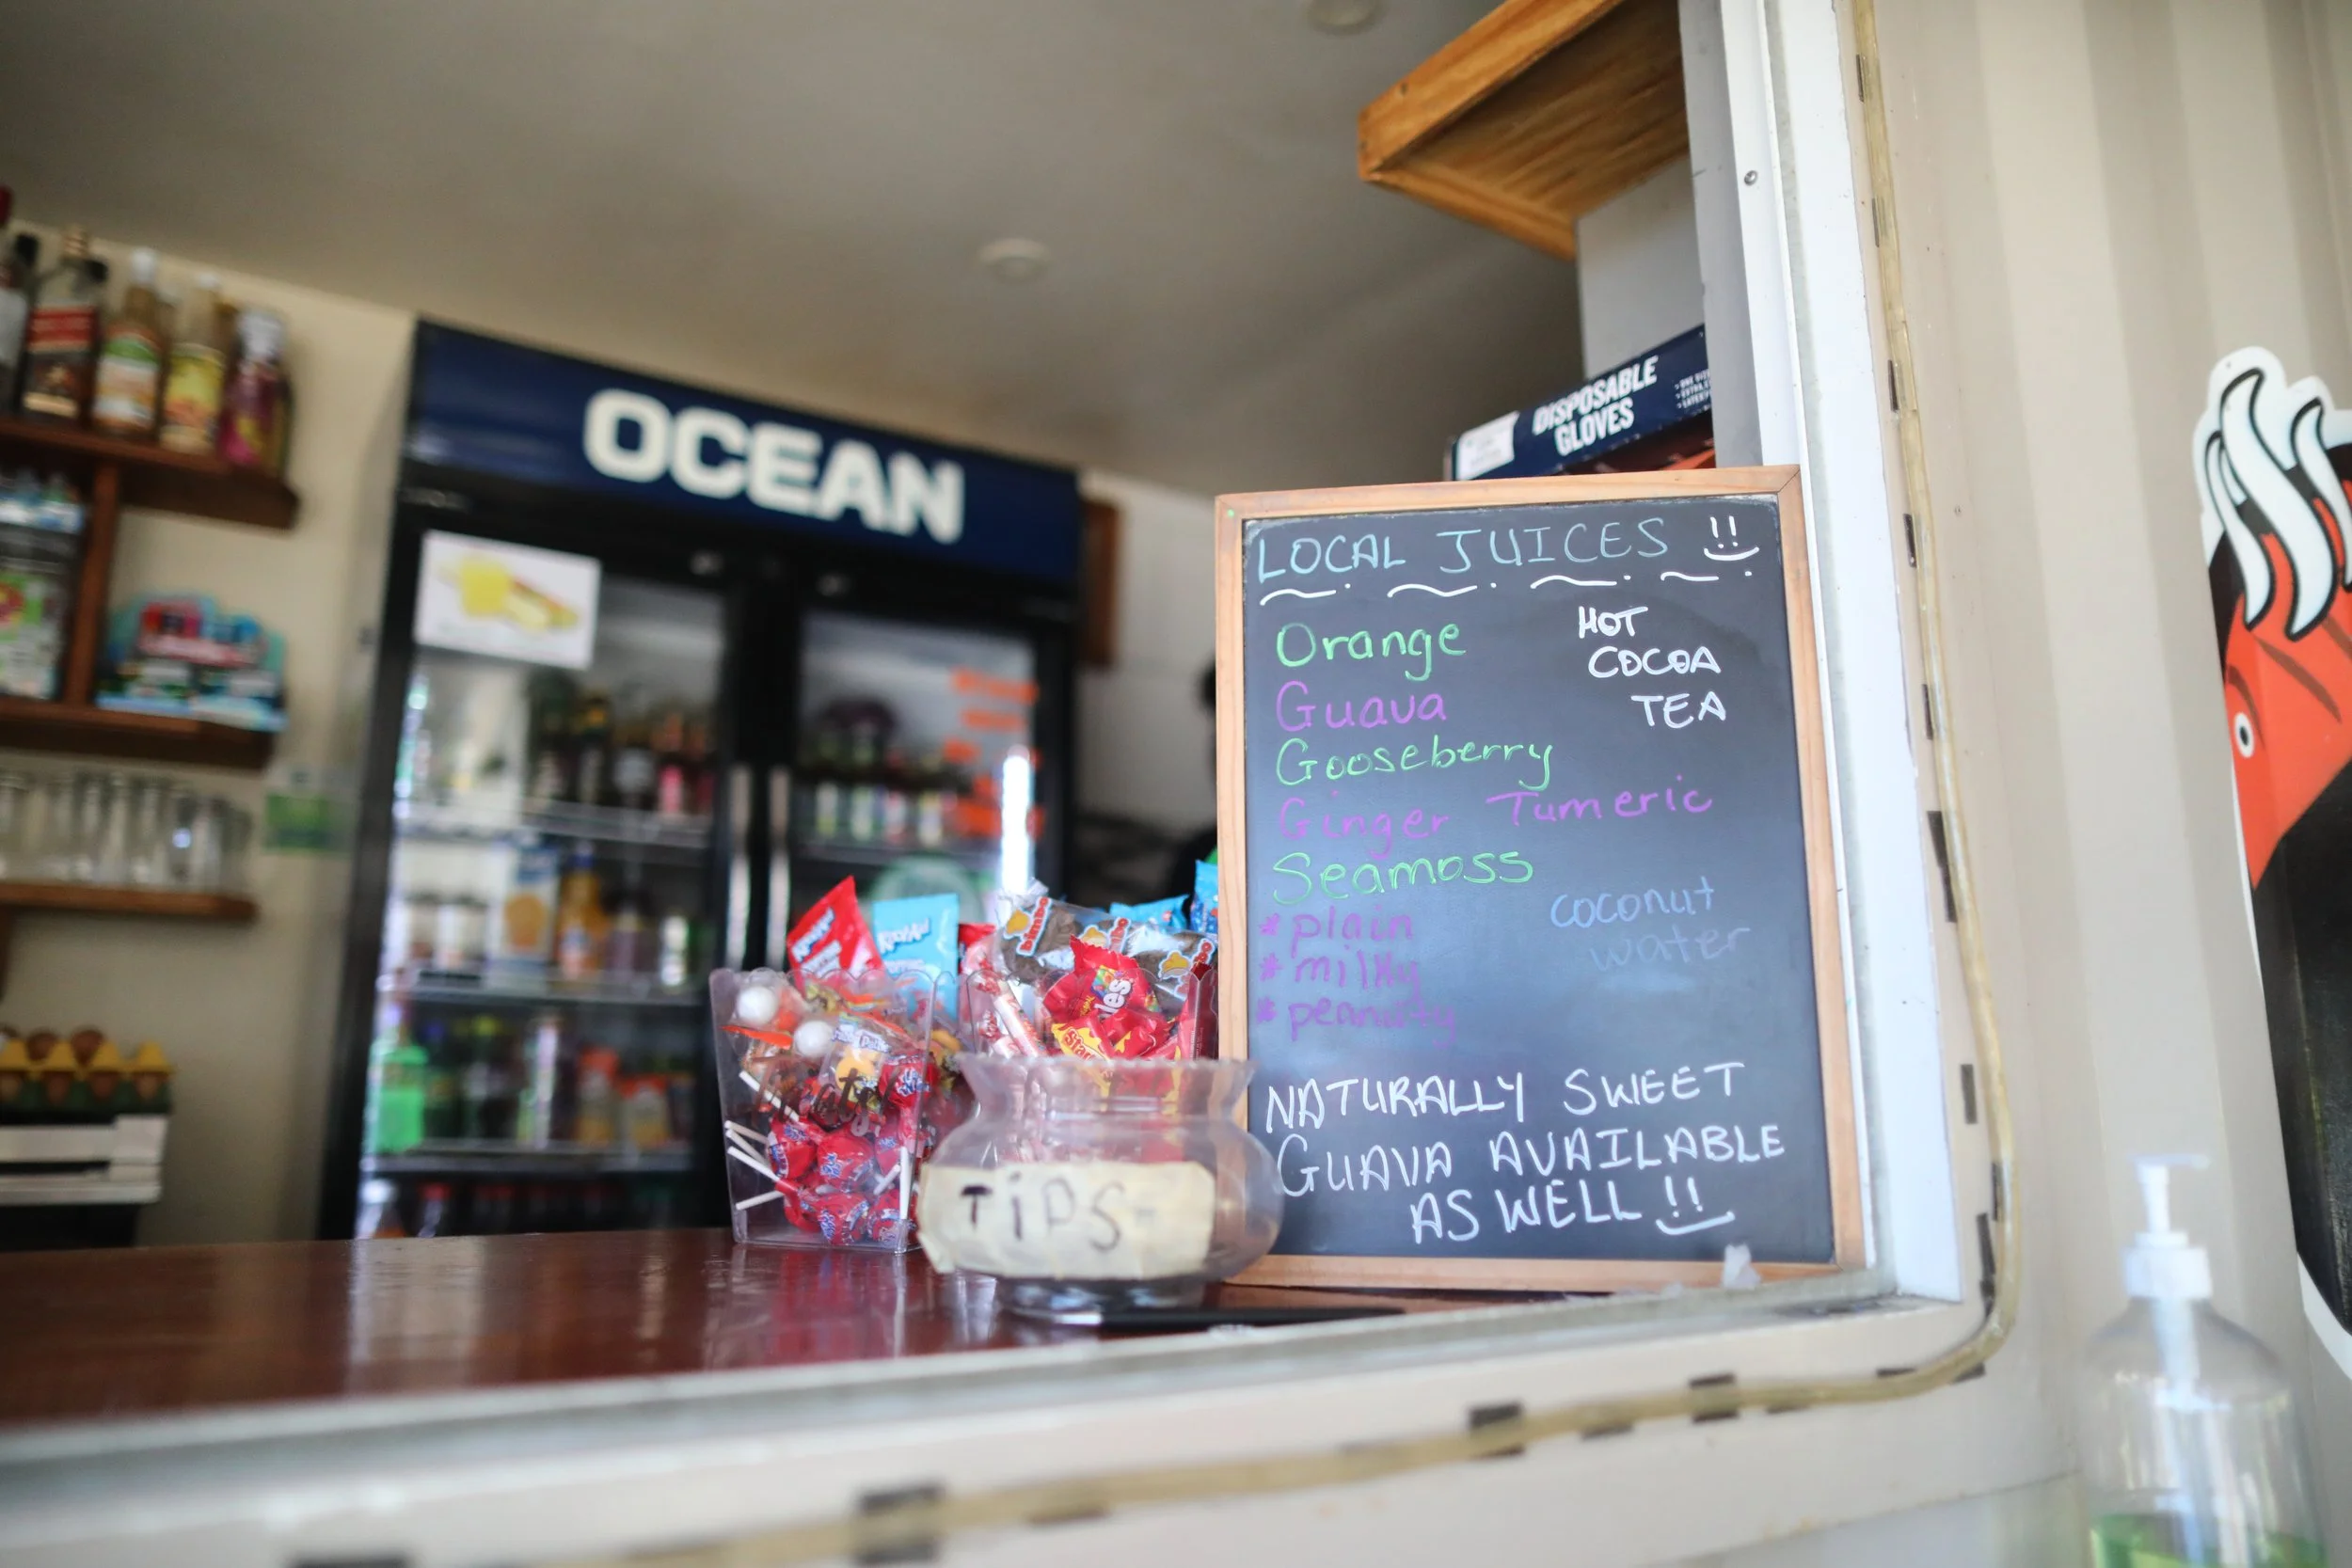 OCEAN
DISPOSABLE
GLOVES
LOCAL JUICES !!
Orange
Guava
Gooseberry
Ginger Tumeric
Seamoss
* plain
* milky
* peanutty
HOT
COCOA
TEA
coconut
water
NATURALLY SWEET
GUAVA AVAILABLE
AS WELL !!
TiPS
Kool-Aid
Bimbo